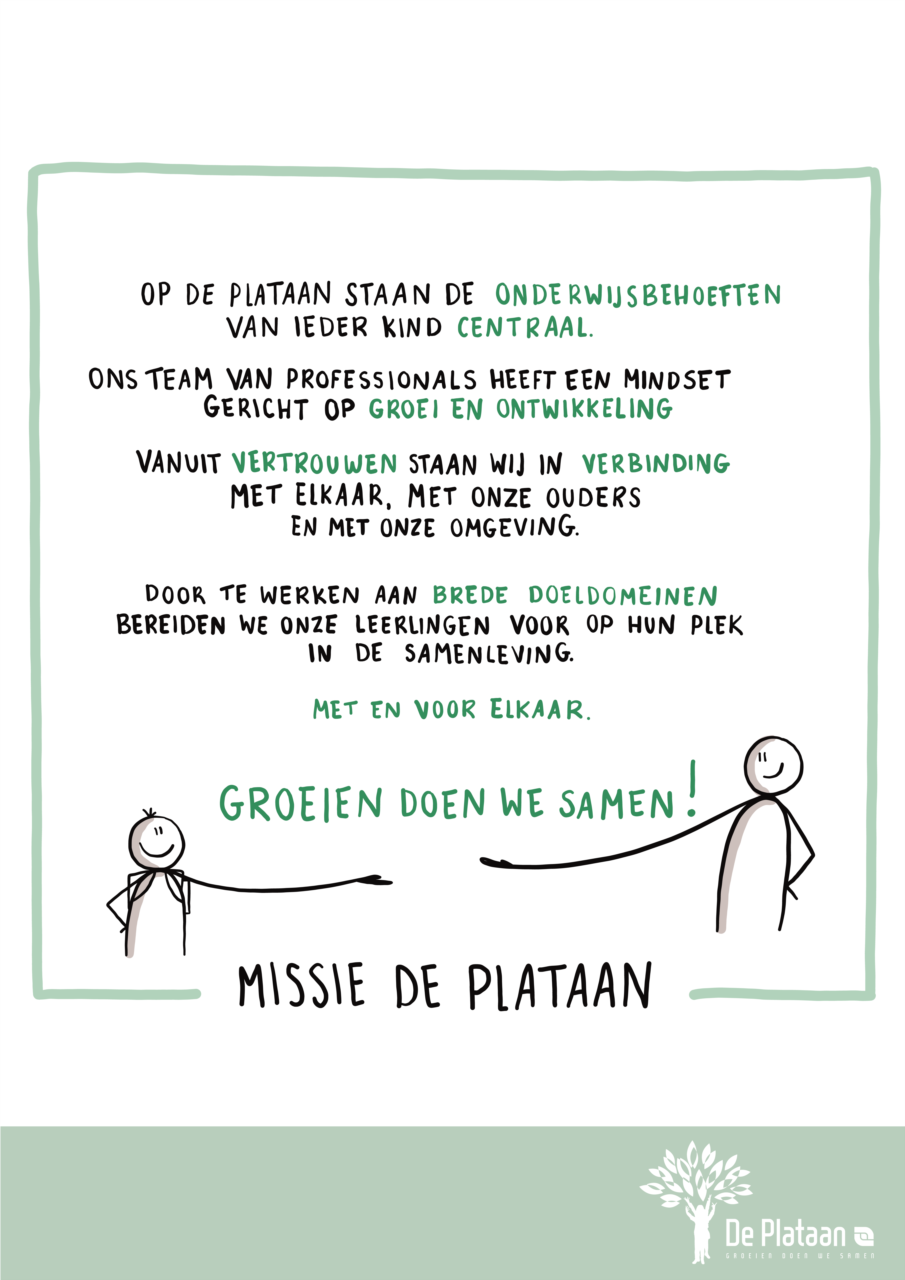 OP DE PLATAAN STAAN DE ONDERWIJSBEHOEFTEN
VAN IEDER KIND CENTRAAL.
ONS TEAM VAN PROFESSIONALS HEEFT EEN MINDSET
GERICHT OP GROEI EN ONTWIKKELING
VANUIT VERTROUWEN STAAN WIJ IN VERBINDING
MET ELKAAR, MET ONZE OUDERS
EN MET ONZE OMGEVING.
DOOR TE WERKEN AAN BREDE DOELDOMEINEN
BEREIDEN WE ONZE LEERLINGEN VOOR OP HUN PLEK
IN DE SAMENLEVING.
MET EN VOOR ELKAAR.
GROEIEN DOEN WE SAMEN!
MISSIE DE PLATAAN
De Plataan
GROEIEN DOEN WE SAMEN